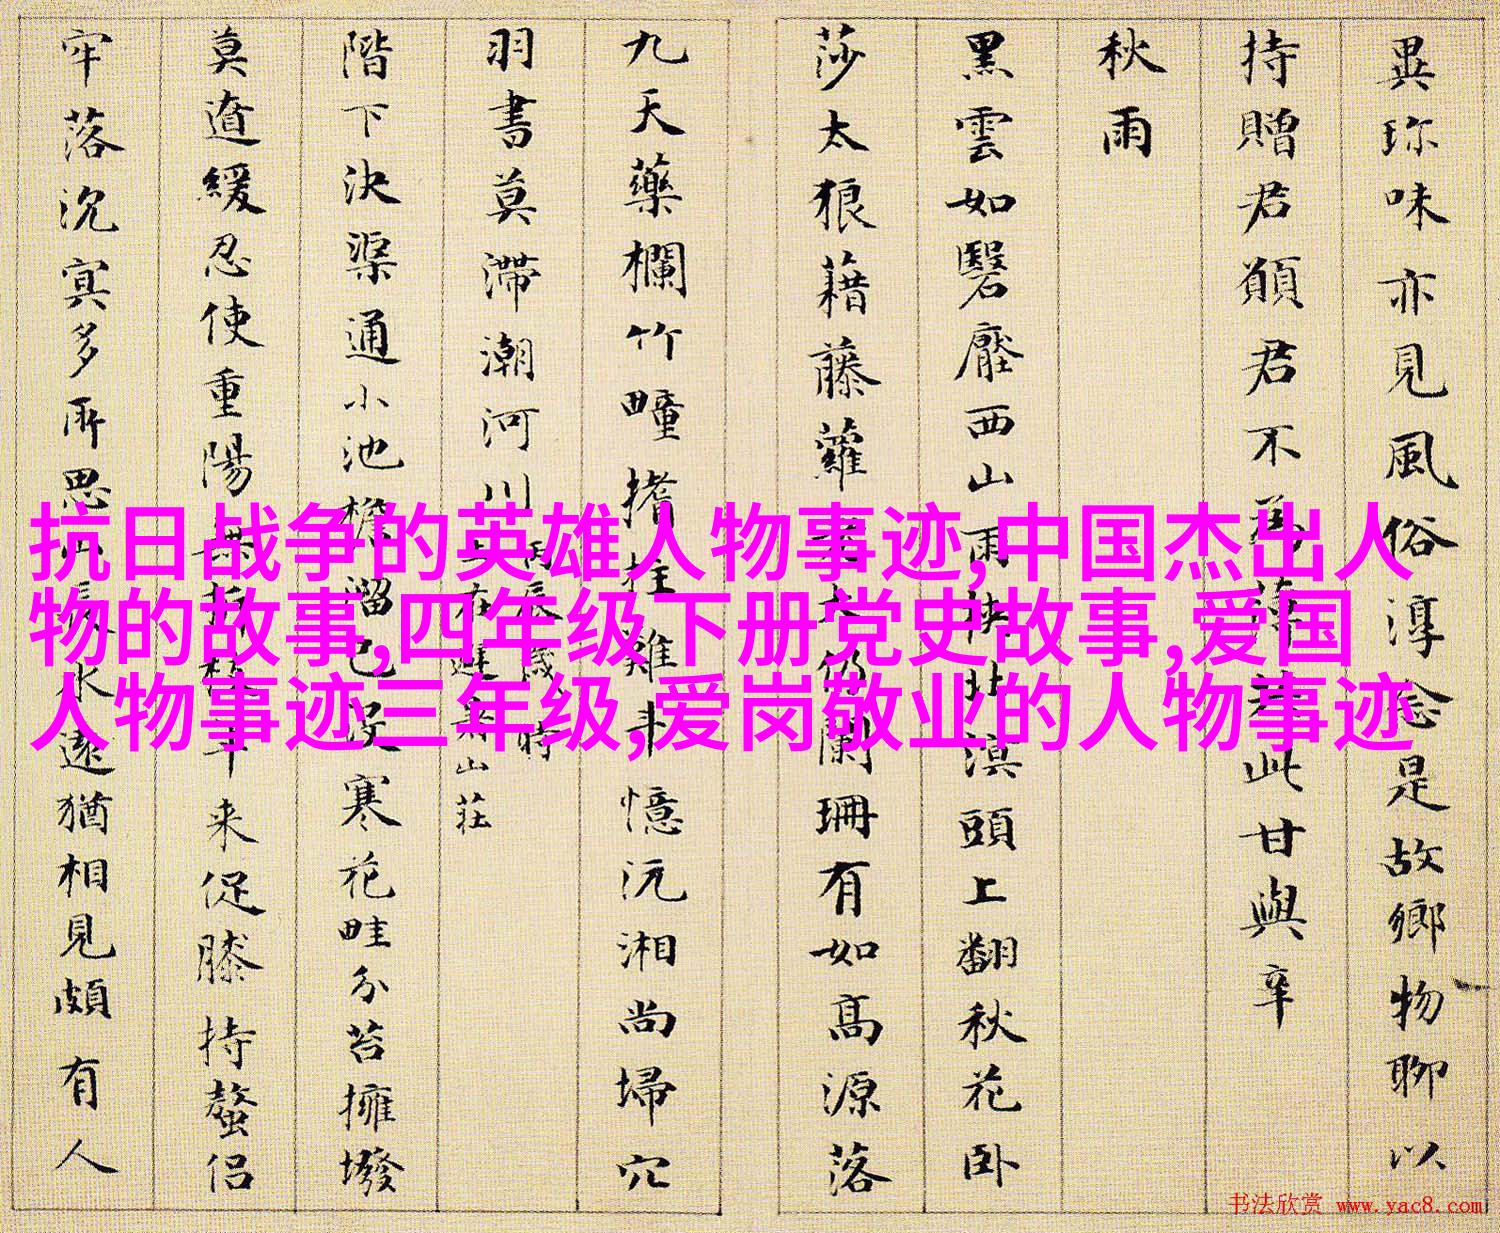 異珎味亦見風俗淳念是故鄉物聊以
持贈君願君不為薄於此甘與辛
秋雨
黑雲如翳壓西山雨映北溟頭上翻秋花卧
莎太狼藉藤蘿
闌珊有如高源落
九天藥欄竹疃搘拄難斗憶沅湘尚埽穴
羽書莫滯潮河川
丙辰歲時
在避暑山莊
階下決渠通小池檐溜已沒寒花畦分苔擁撥
莫道緩忍使重陽
來促膝持螯侶
牢落沉冥多所思
水遠猶相見頗有人
抗日战争的英雄人物事迹,中国杰出人
物的故事,四年级下册党史故事,爱国
人物事迹三年级,爱岗敬业的人物事迹
书法欣赏 www.yac8.com